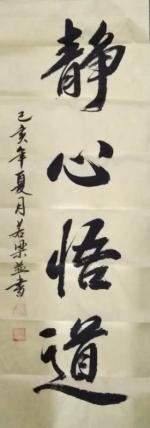 静心悟道
己亥年夏月若楽並書